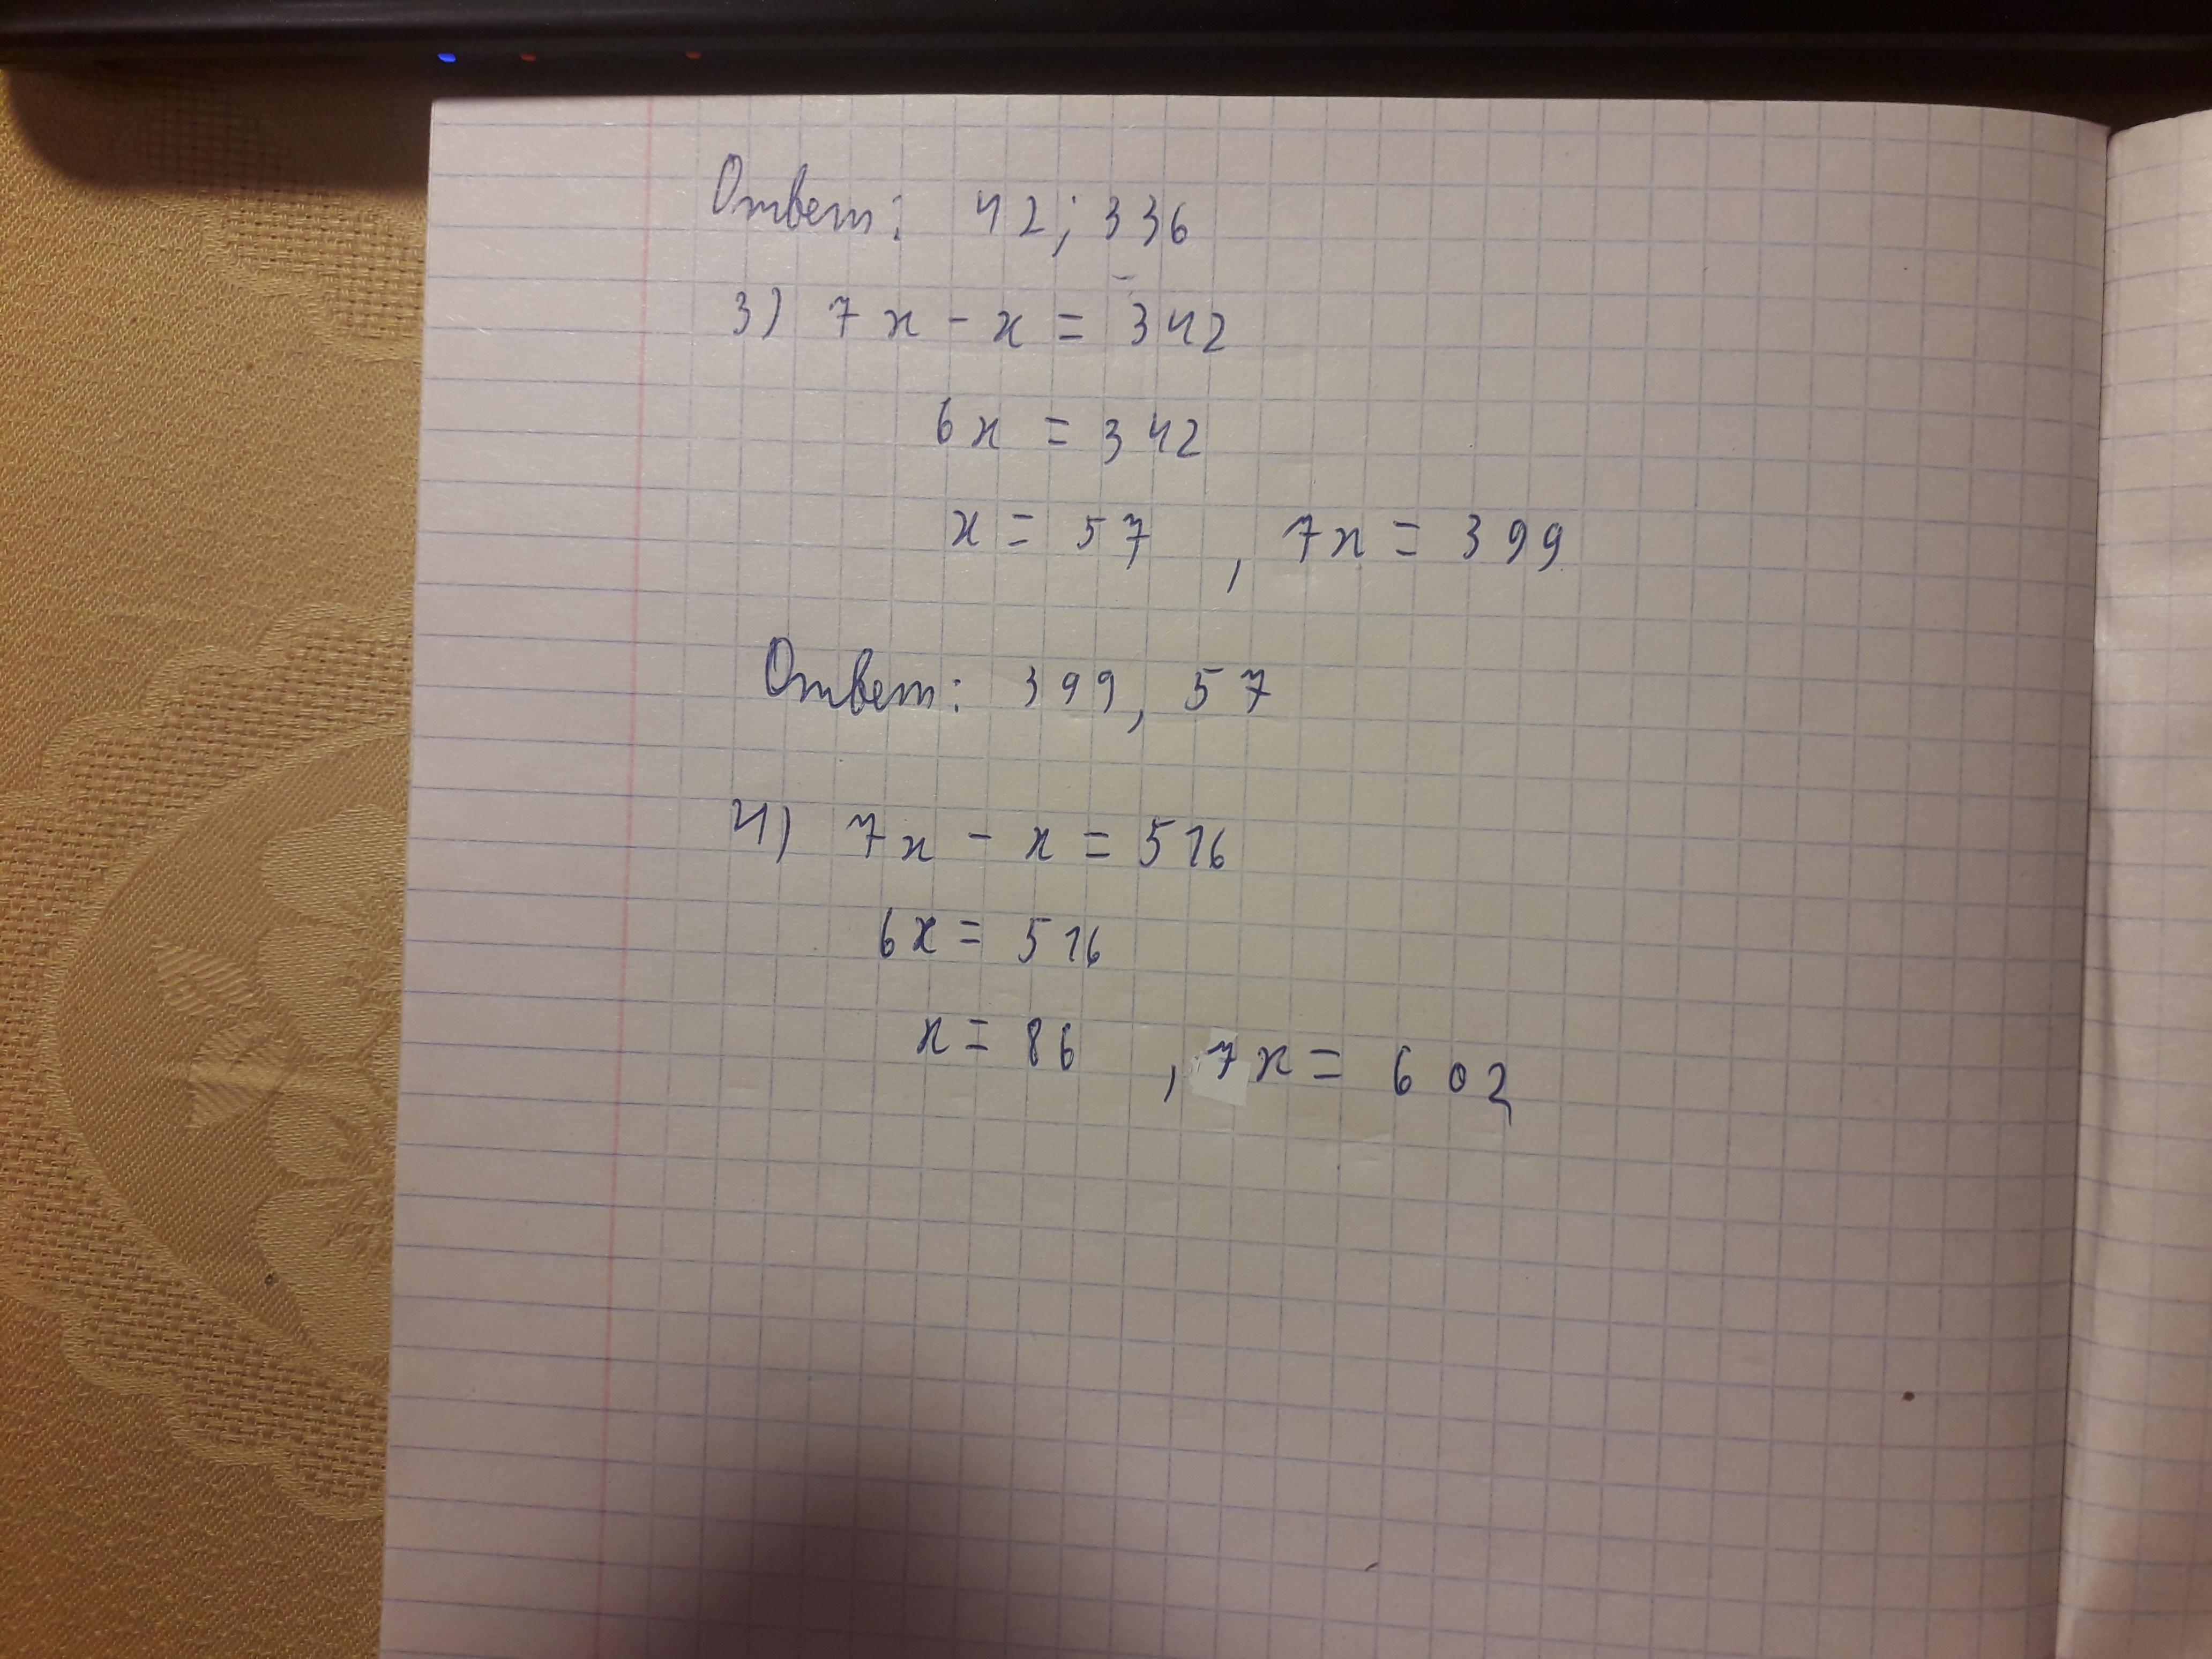 Ответ: 42; 336
3) 7x - x = 342
6x = 342
x = 57 , 7x = 399
Ответ: 399, 57
4) 7x - x = 516
6x = 516
x = 86 , 7x = 602